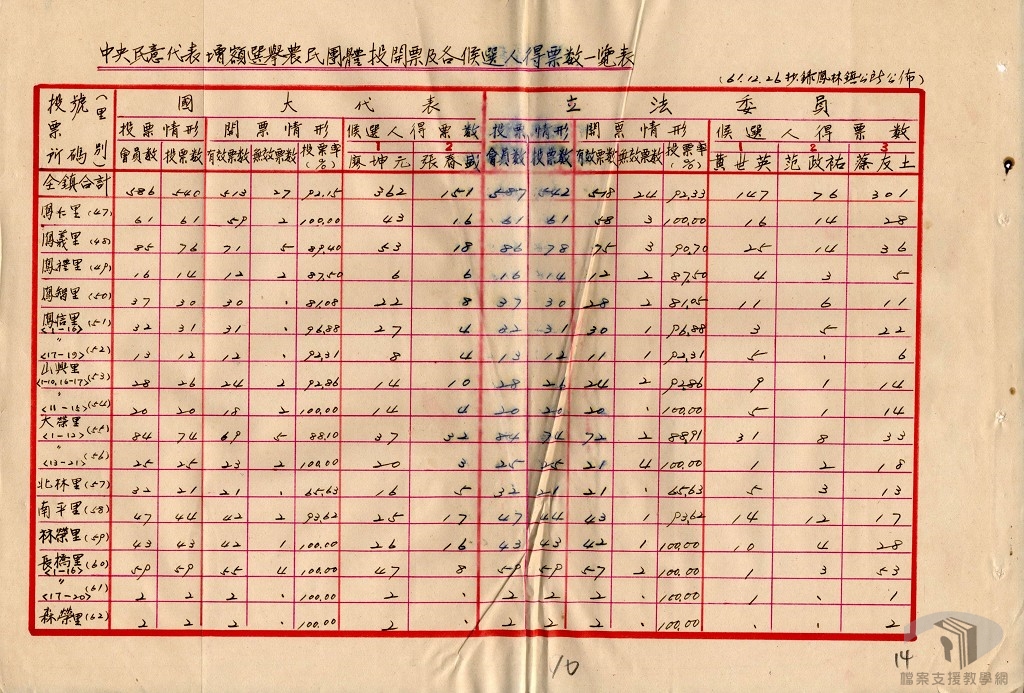 中央民意代表增額選舉農民團體投開票及各候選人得票數一覽表
(61.12.26抄錄鳳林鎮公所公佈)
投票所號碼(里別) 國大代表 立法委員
投票情形 開票情形 候選人得票數 投票情形 開票情形 候選人得票數
會員數 投票數 有效票數 無效票數 投票率(%) 1 廖坤元 2 張春盛 會員數 投票數 有效票數 無效票數 投票率(%) 1 黃世英 2 范政祐 3 蔡友土
全鎮合計 586 540 513 27 92.15 362 151 587 542 518 24 92.33 147 76 301
鳳仁里(47) 61 61 59 2 100.00 43 16 61 61 58 3 100.00 16 14 28
鳳義里(48) 85 76 71 5 89.40 53 18 86 78 75 3 90.70 25 14 36
鳳禮里(49) 16 14 12 2 87.50 6 6 16 14 12 2 87.50 4 3 5
鳳智里(50) 37 30 30 · 81.08 22 8 37 30 28 2 81.05 11 6 11
鳳信里(51) <1-16> 32 31 31 · 96.88 27 4 32 31 30 1 96.88 3 5 22
〃(52) <17-19> 13 12 12 · 92.31 8 4 13 12 11 1 92.31 5 · 6
山興里(53) <1-10,16-17> 28 26 24 2 92.86 14 10 28 26 24 2 92.86 9 1 14
〃(54) <11-15> 20 20 18 2 100.00 14 4 20 20 20 · 100.00 5 1 14
大榮里(55) <1-12> 84 74 69 5 88.10 37 32 84 74 72 2 88.91 31 8 33
〃(56) <13-21> 25 25 23 2 100.00 20 3 25 25 21 4 100.00 1 2 18
北林里(57) 32 21 21 · 65.63 16 5 32 21 21 · 65.63 5 3 13
南平里(58) 47 44 42 2 93.62 25 17 47 44 43 1 93.62 14 12 17
林榮里(59) 43 43 42 1 100.00 26 16 43 43 42 1 100.00 10 4 28
長橋里(60) <1-16> 59 59 55 4 100.00 47 8 59 59 57 2 100.00 1 3 53
〃(61) <17-20> 2 2 2 · 100.00 2 · 2 2 2 · 100.00 1 · 1
森榮里(62) 2 2 2 · 100.00 2 · 2 2 2 · 100.00 · · 2
10
14
檔案支援教學網